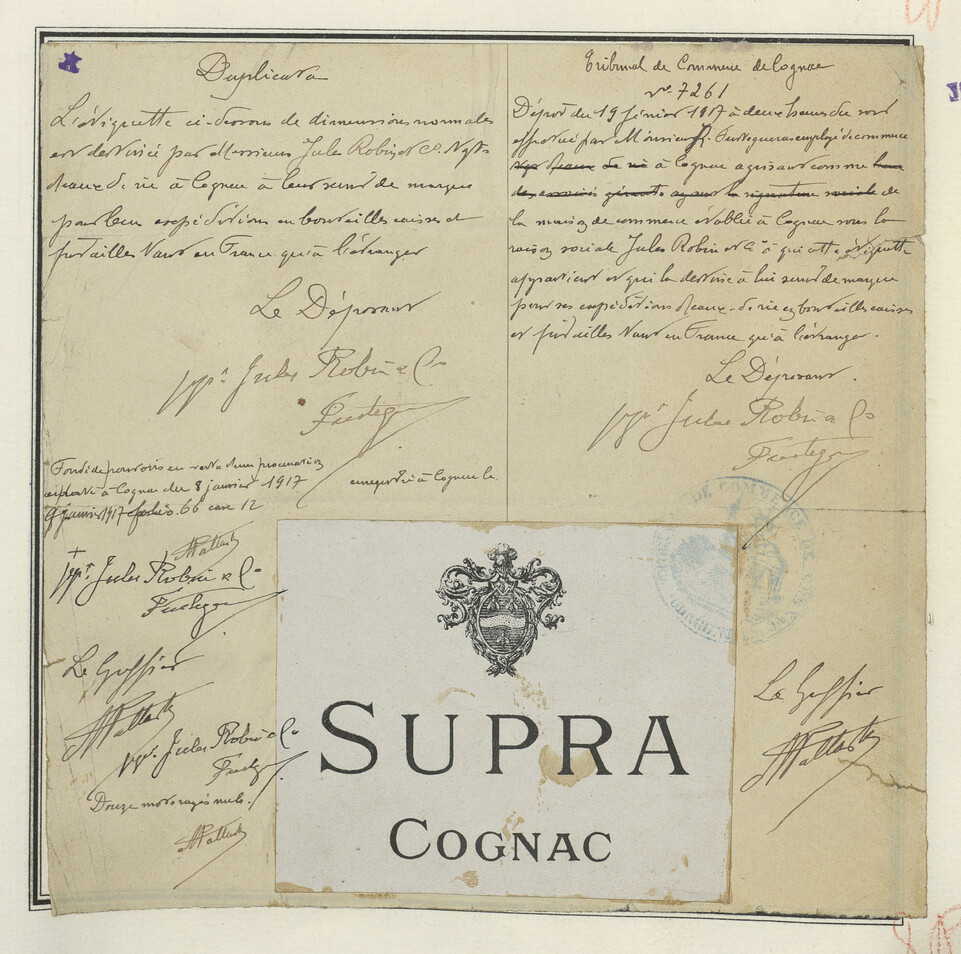 Duplicata
L'étiquette ci-dessous de dimensions normales
est destinée par Messieurs Jules Robin & Co. Negts
d'eaux-de-vie à Cognac à leur servir de marque
pour leurs expéditions en bouteilles caisses et
futailles tant en France qu'à l'étranger
Le Déposant
ppn Jules Robin & Co
Tribunal de Commerce de Cognac
No 7261
Dépôt du 19 février 1917 à deux heures du soir
effectué par Monsieur employé de commerce
negt d'eaux de vie à Cognac agissant comme l'un
des associés gérants ayant la signature sociale de
la maison de commerce établie à Cognac sous la
raison sociale Jules Robin et Cie à qui cette étiquette
appartient et qui la destine à lui servir de marque
pour ses expéditions d'eaux-de-vie en bouteilles caisses
et futailles tant en France qu'à l'étranger.
Le Déposant.
ppn Jules Robin & Co
Fondé de pouvoirs en vertu d'une procuration
à Cognac du 8 janvier 1917 enregistré à Cognac le
9 janvier 1917 folio 66 case 12
ppn Jules Robin & Co
Le Greffier
ppn Jules Robin & Co
Douze mots rayés nuls.
SUPRA
COGNAC
Le Greffier
DE COMMERCE DE